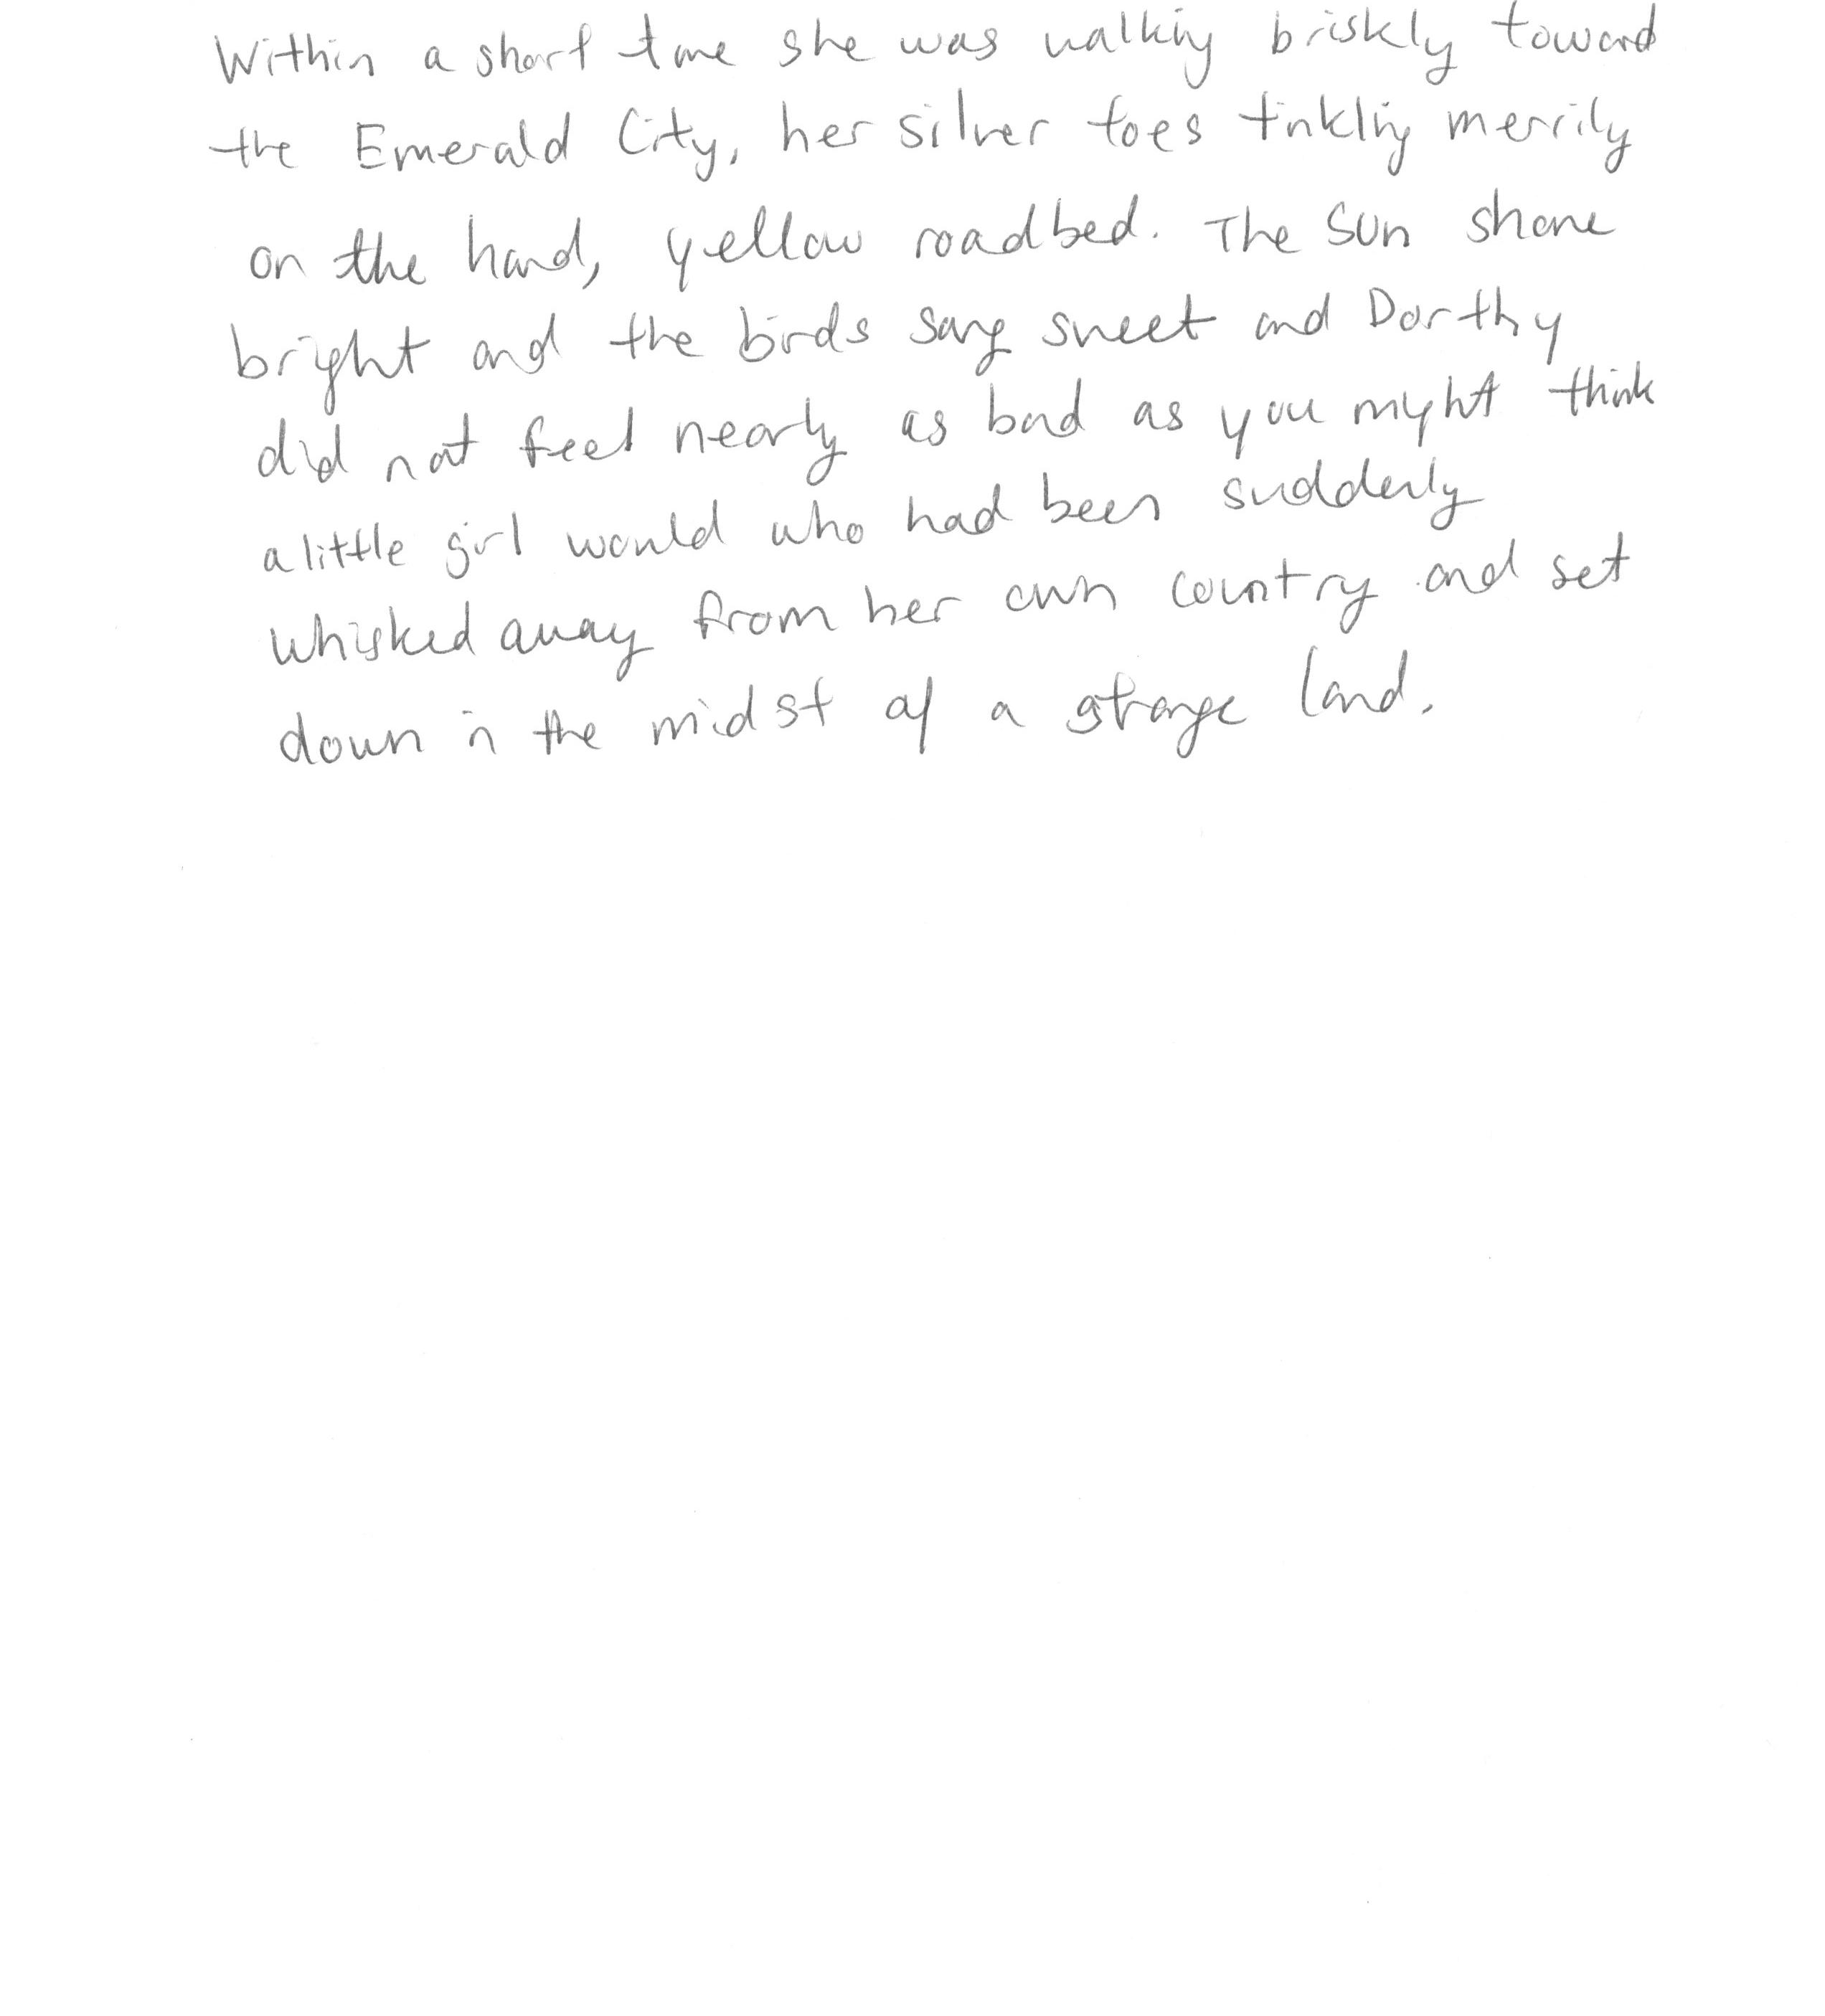 Within a short time she was walking briskly toward
the Emerald City, her silver toes tinkling merrily
on the hard, yellow roadbed. The sun shone
bright and the birds sang sweet and Dorthy
did not feel nearly as bad as you might think
a little girl would who had been suddenly
whisked away from her own country and set
down in the midst of a strange land.